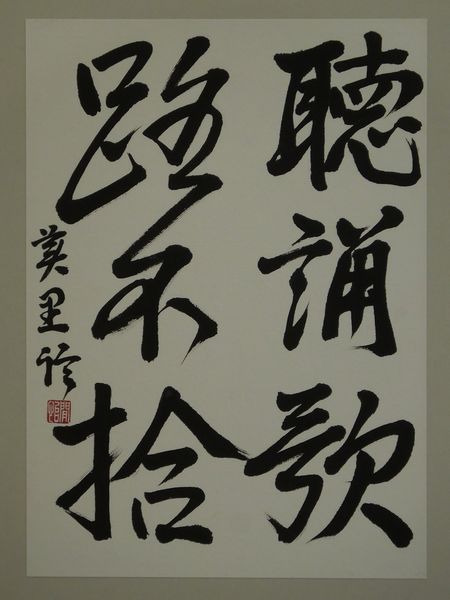 聴誦歌
路不拾
英里